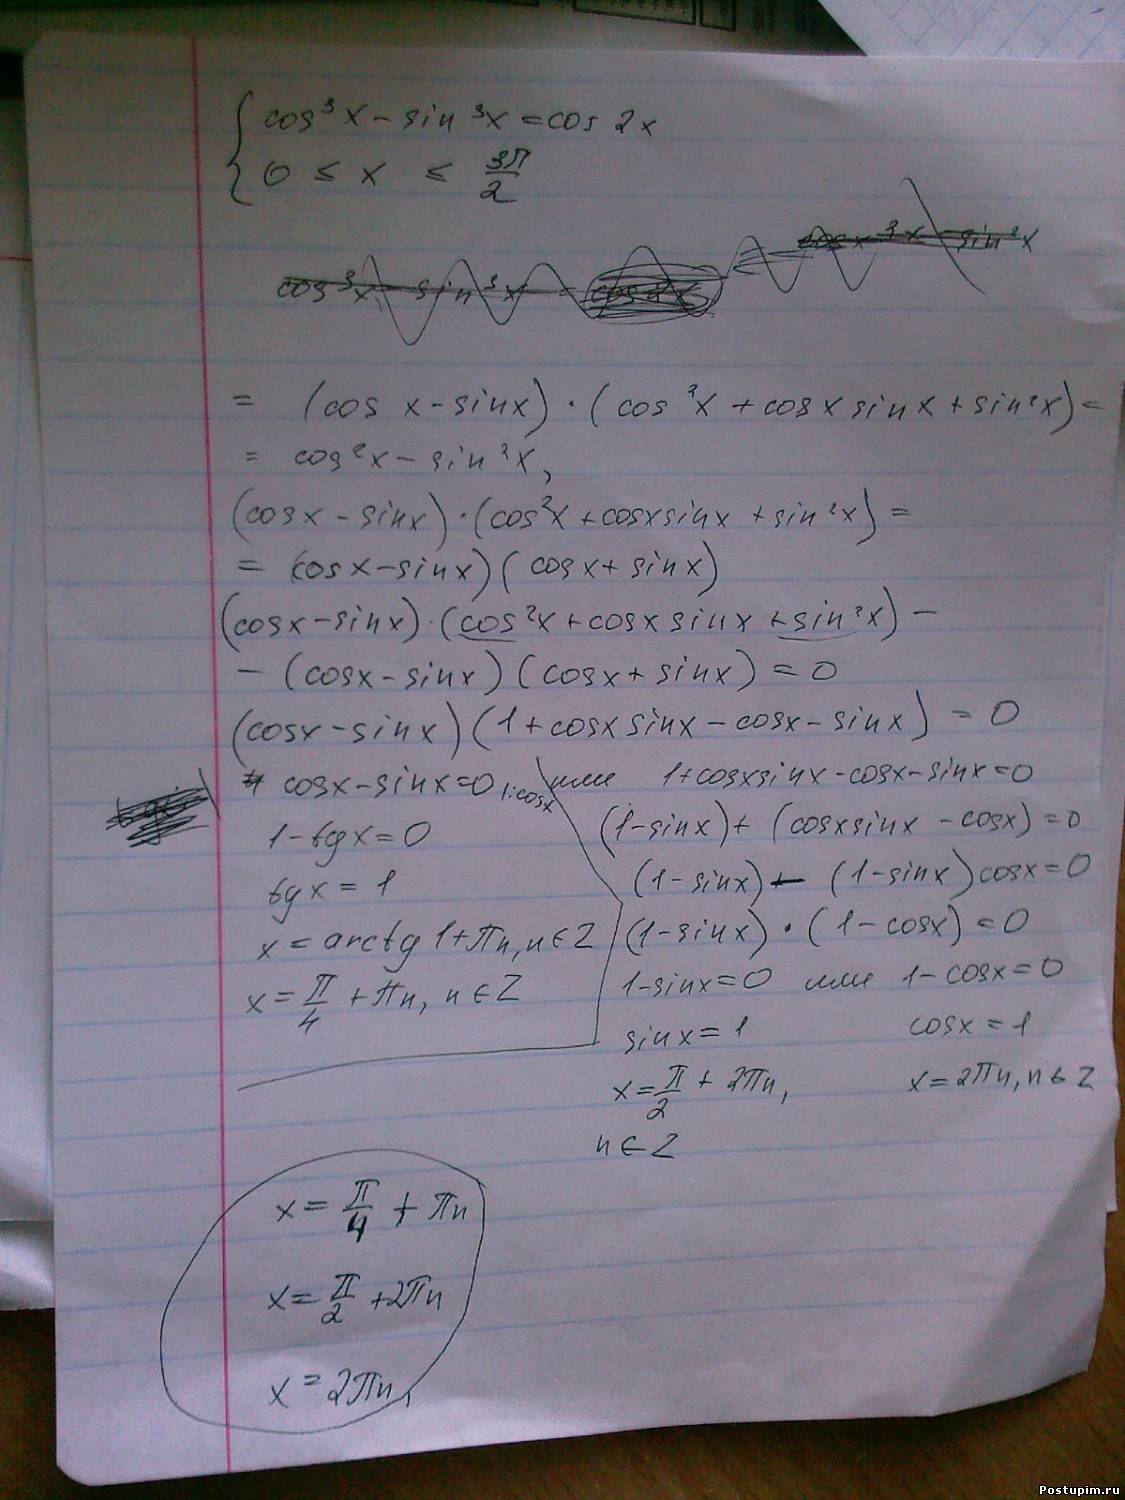 { cos³x - sin³x = cos 2x
0 ≤ x ≤ 3π/2
cos³x - sin³x = cos 2x = cos³x - sin²x
= (cos x - sinx) · (cos²x + cosx sinx + sin²x) =
= cos²x - sin²x,
(cosx - sinx) · (cos²x + cosxsinx + sin²x) =
= (cosx - sinx)(cosx + sinx)
(cosx - sinx) · (cos²x + cosx sinx + sin²x) -
- (cosx - sinx)(cosx + sinx) = 0
(cosx - sinx)(1 + cosx sinx - cosx - sinx) = 0
cosx - sinx = 0 |:cosx или 1 + cosxsinx - cosx - sinx = 0
1 - tgx = 0
tgx = 1
x = arctg 1 + πn, n ∈ Z
x = π/4 + πn, n ∈ Z
(1 - sinx) + (cosxsinx - cosx) = 0
(1 - sinx) - (1 - sinx)cosx = 0
(1 - sinx) · (1 - cosx) = 0
1 - sinx = 0 или 1 - cosx = 0
sinx = 1 cosx = 1
x = π/2 + 2πn, x = 2πn, n ∈ Z
n ∈ Z
x = π/4 + πn
x = π/2 + 2πn
x = 2πn,
Postupim.ru